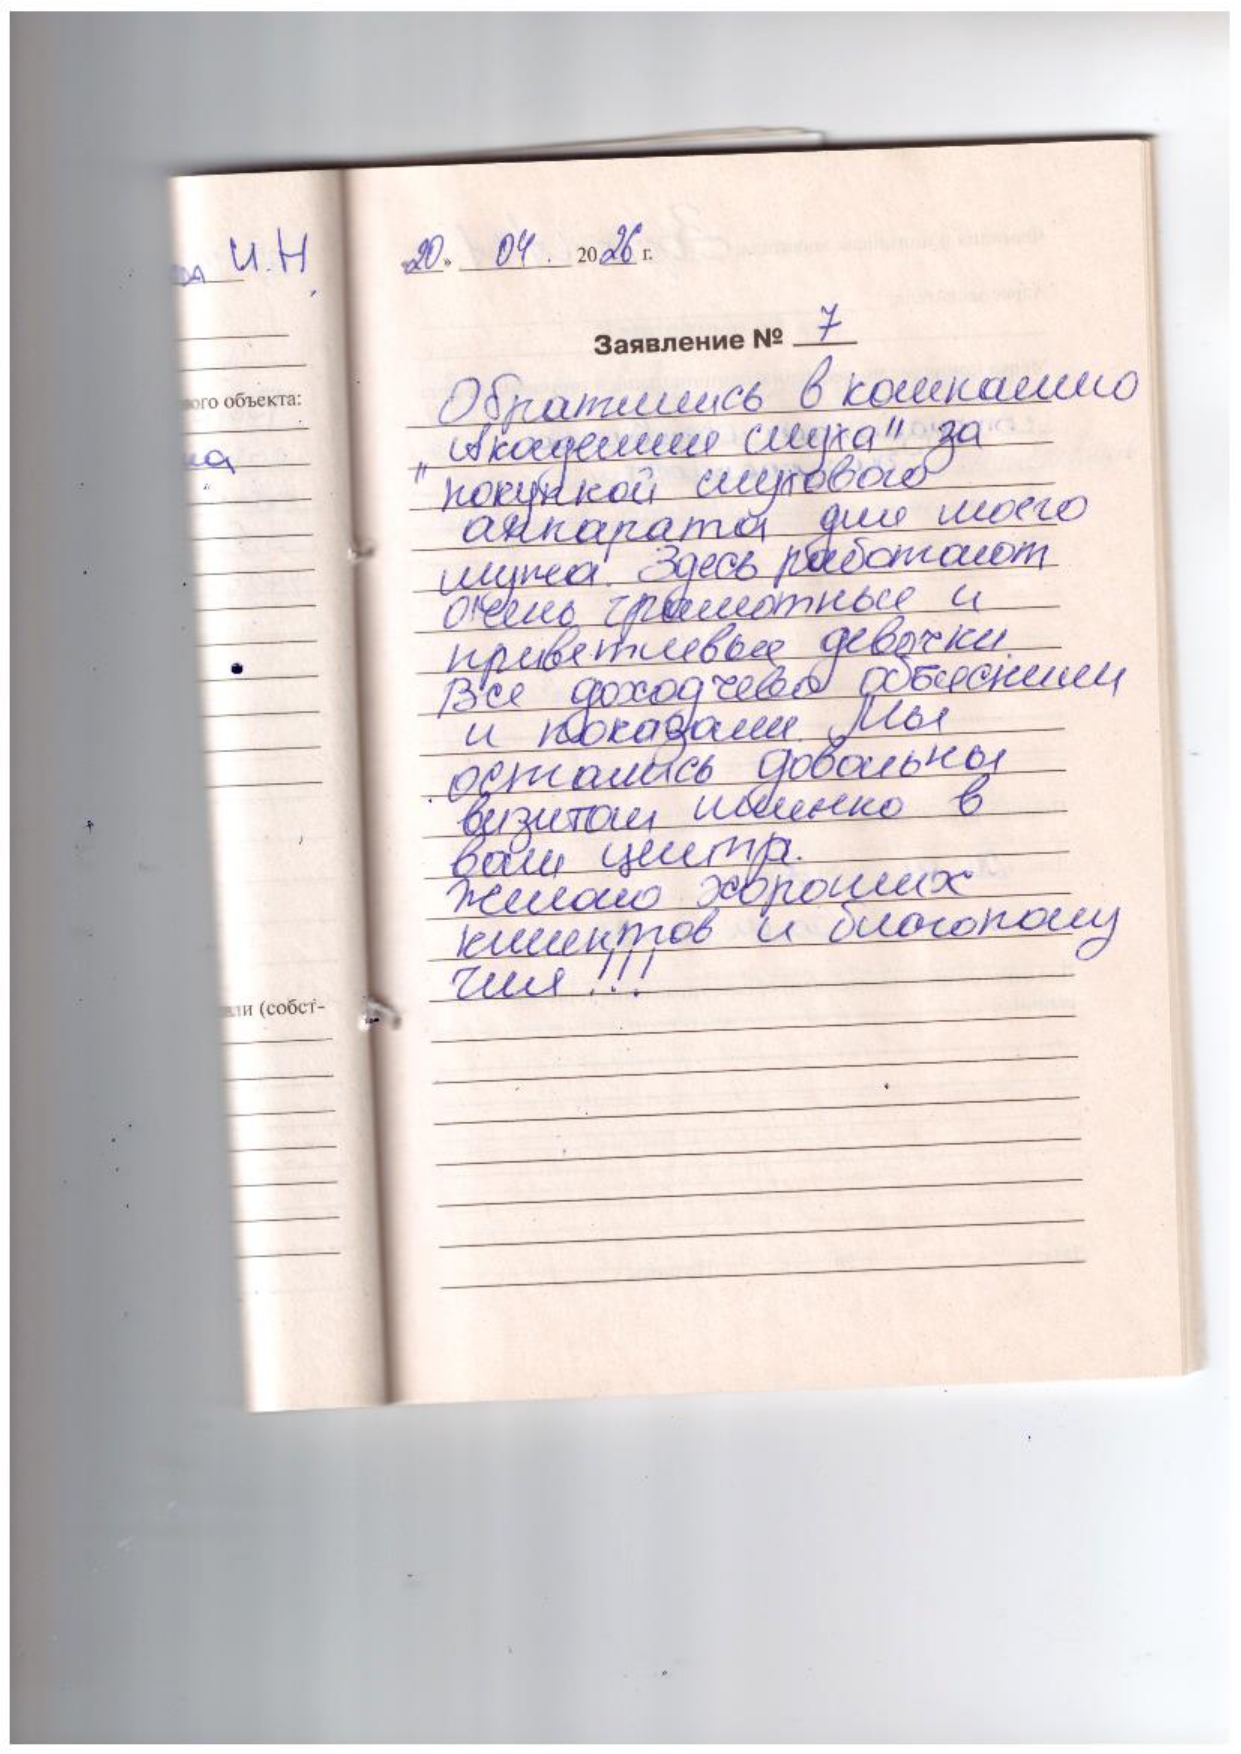 И.Н
ого объекта:
ли (собст-
«20» 04. 2026 г.
Заявление № 7
Обратились в компанию
"Академия слуха" за
покупкой слухового
аппарата для моего
мужа. Здесь работают
очень грамотные и
приветливые девочки.
Все доходчево объяснили
и показали. Мы
остались довольны
визитом именно в
ваш центр.
Желаю хороших
клиентов и благополу
чия !!!